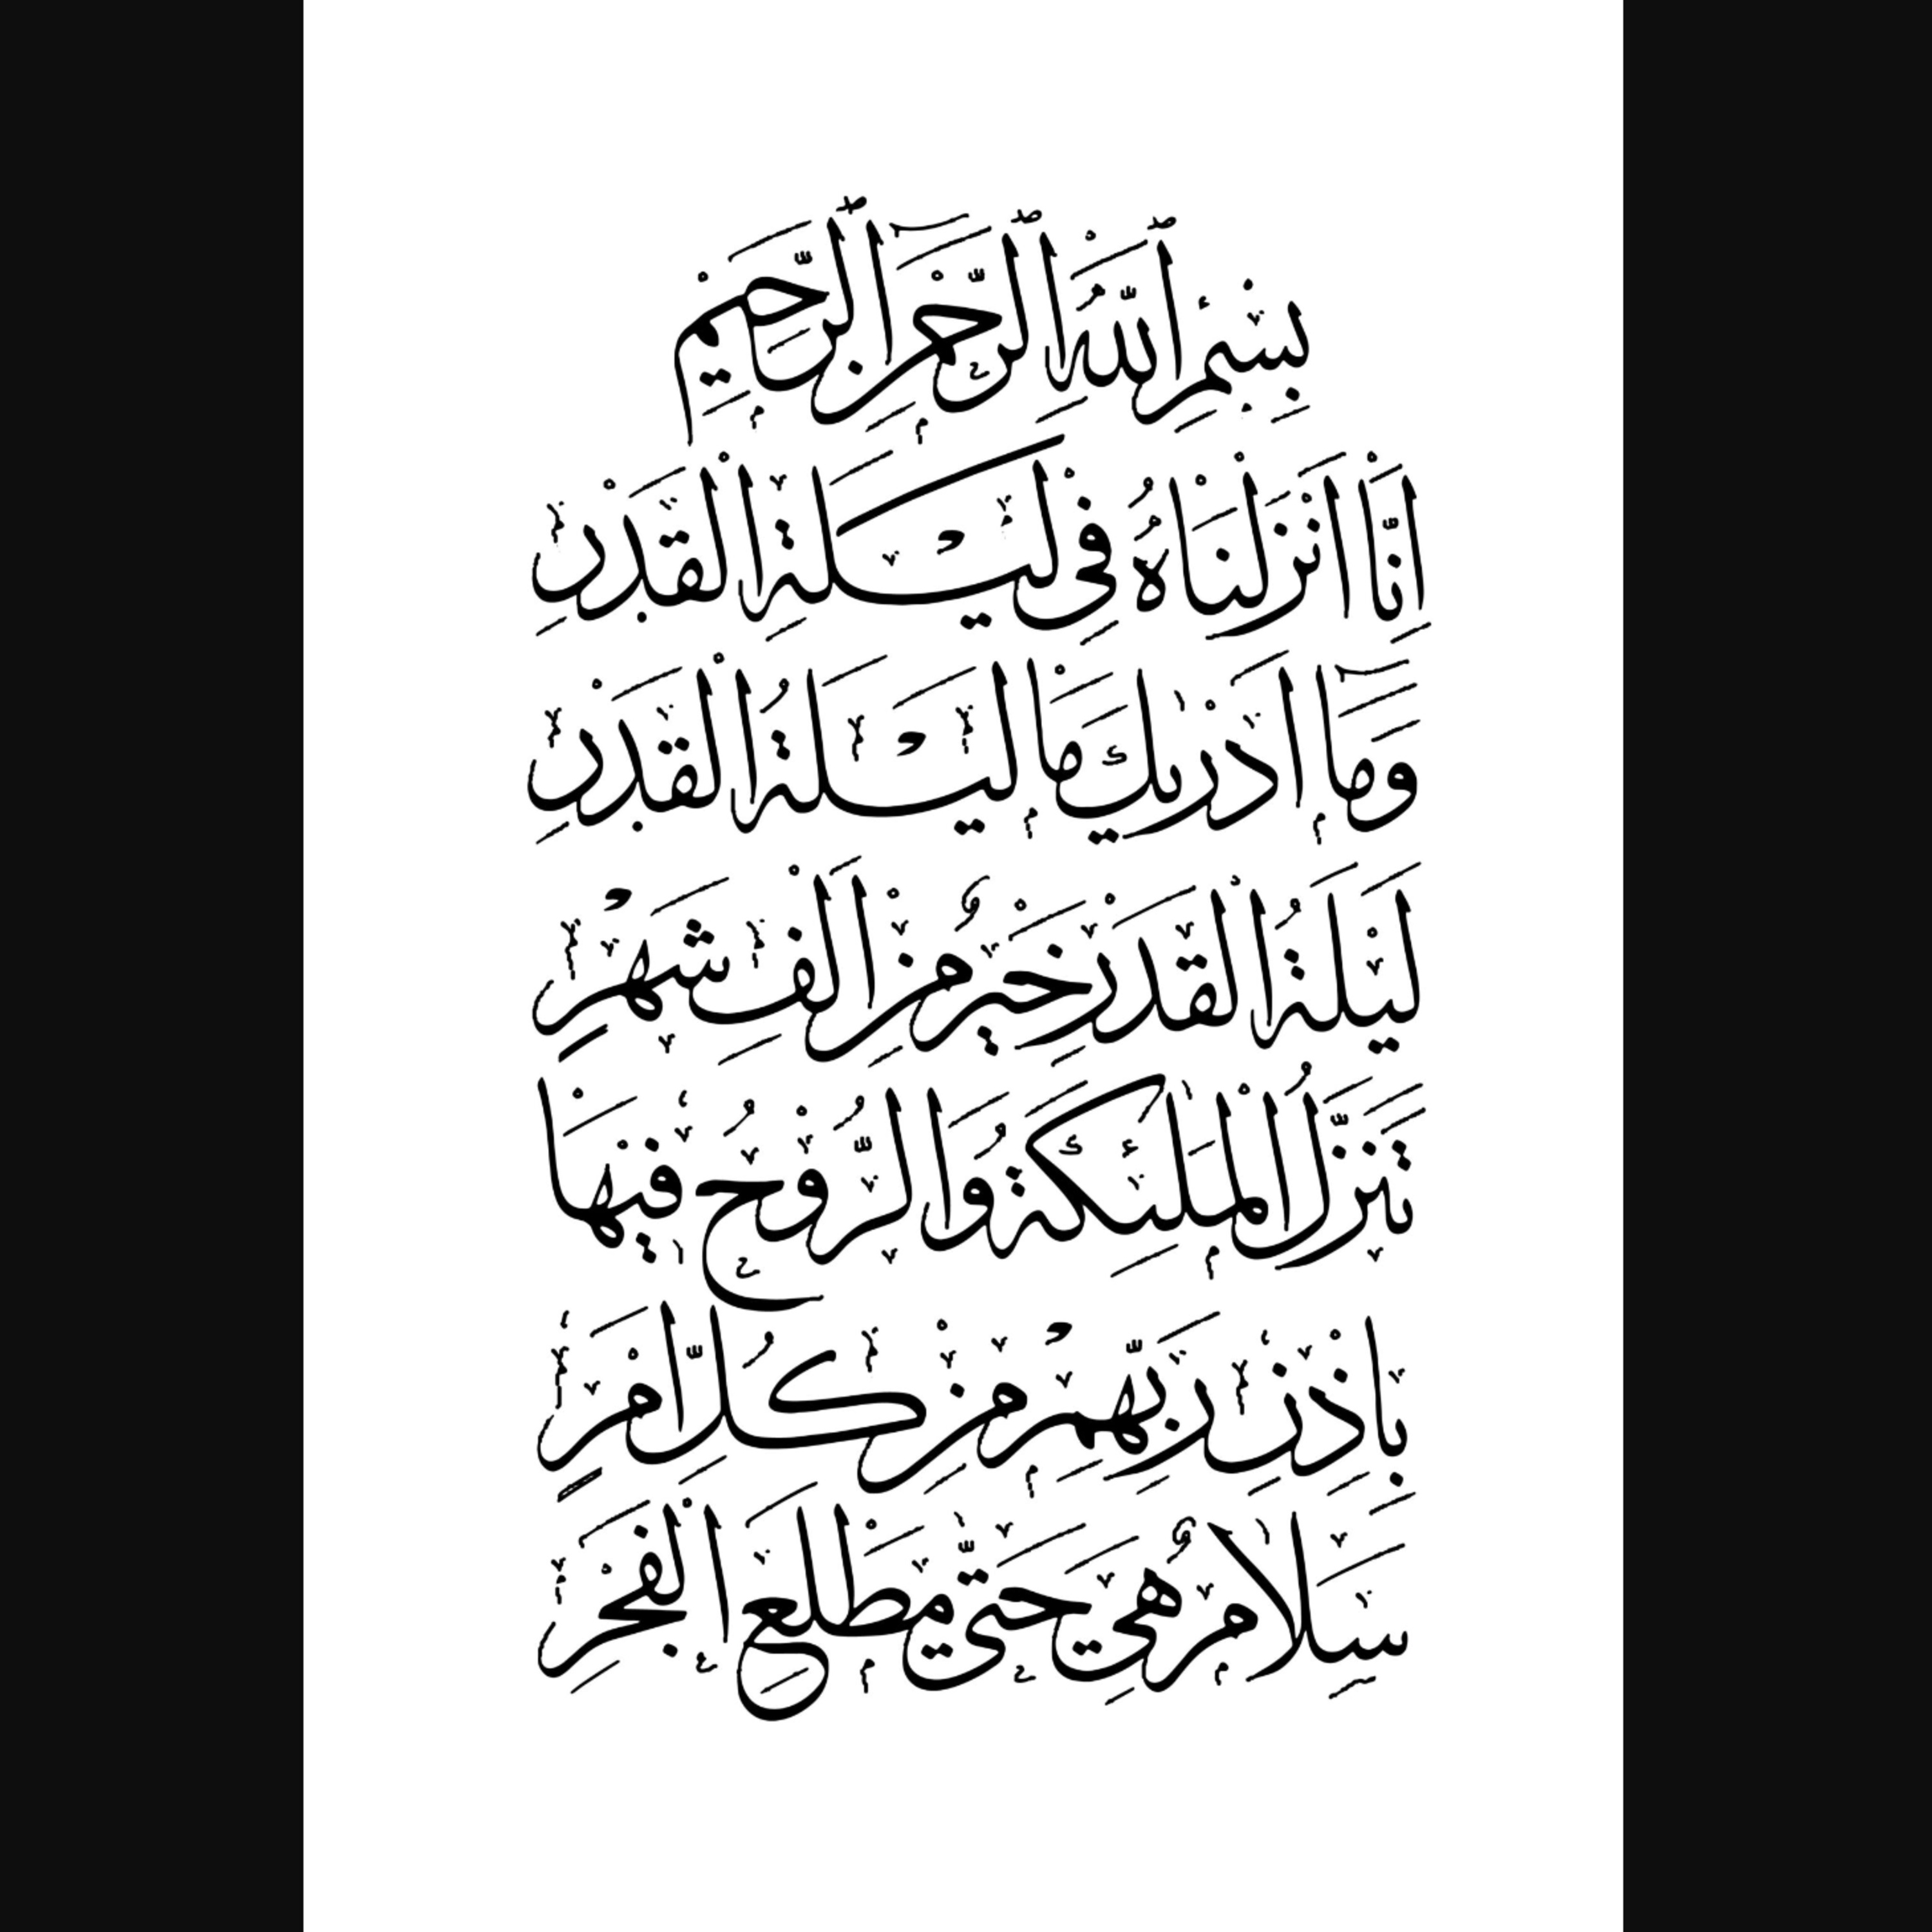 بِسْمِ اللَّهِ الرَّحْمَٰنِ الرَّحِيمِ
اِنَّا اَنْزَلْنَاهُ فِي لَيْلَةِ الْقَدْرِ
وَمَا اَدْرٰيكَ مَا لَيْلَةُ الْقَدْرِ
لَيْلَةُ الْقَدْرِ خَيْرٌ مِنْ اَلْفِ شَهْرٍ
تَنَزَّلُ الْمَلٰئِكَةُ وَالرُّوحُ فِيهَا
بِاِذْنِ رَبِّهِمْ مِنْ كُلِّ اَمْرٍ
سَلَامٌ هِيَ حَتّٰى مَطْلَعِ الْفَجْرِ